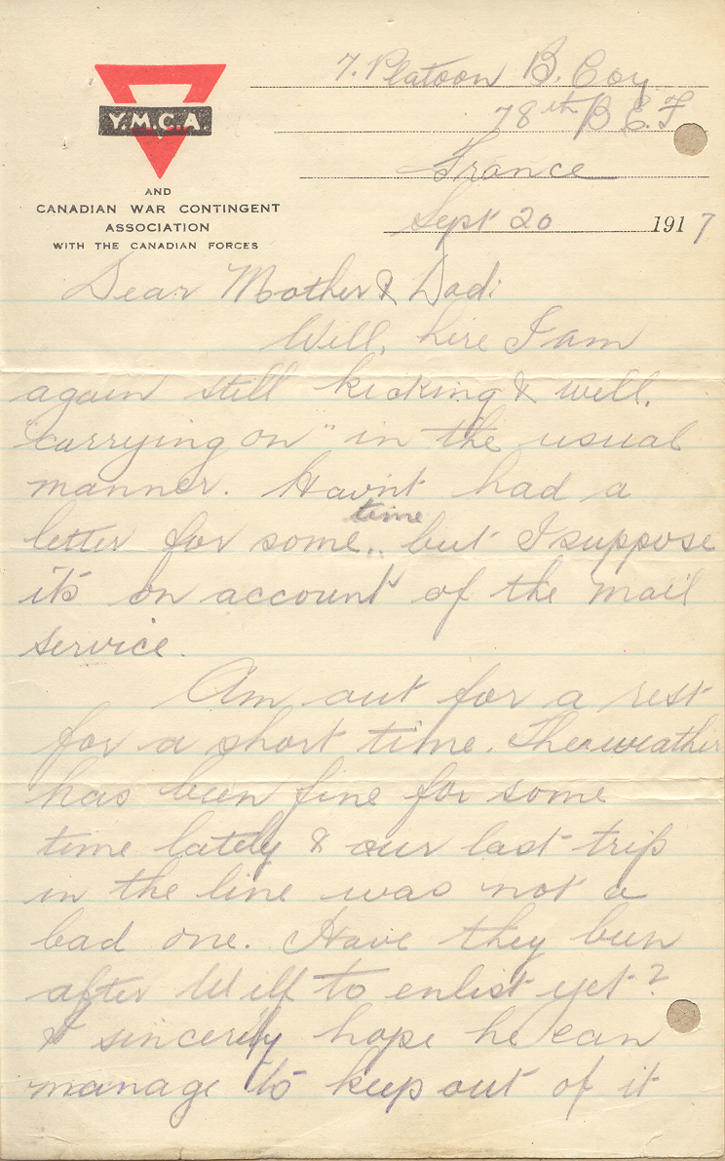 7. Platoon B. Coy
78th B E. F
France
Sept 20 1917
Y.M.C.A.
AND
CANADIAN WAR CONTINGENT
ASSOCIATION
WITH THE CANADIAN FORCES
Dear Mother & Dad:
Well, here I am
again still kicking & well,
"carrying on" in the usual
manner. Havn't had a
letter for some time, but I suppose
it's on account of the mail
service.
Am out for a rest
for a short time. The weather
has been fine for some
time lately & our last trip
in the line was not a
bad one. Have they been
after Will to enlist yet?
I sincerely hope he can
manage to keep out of it